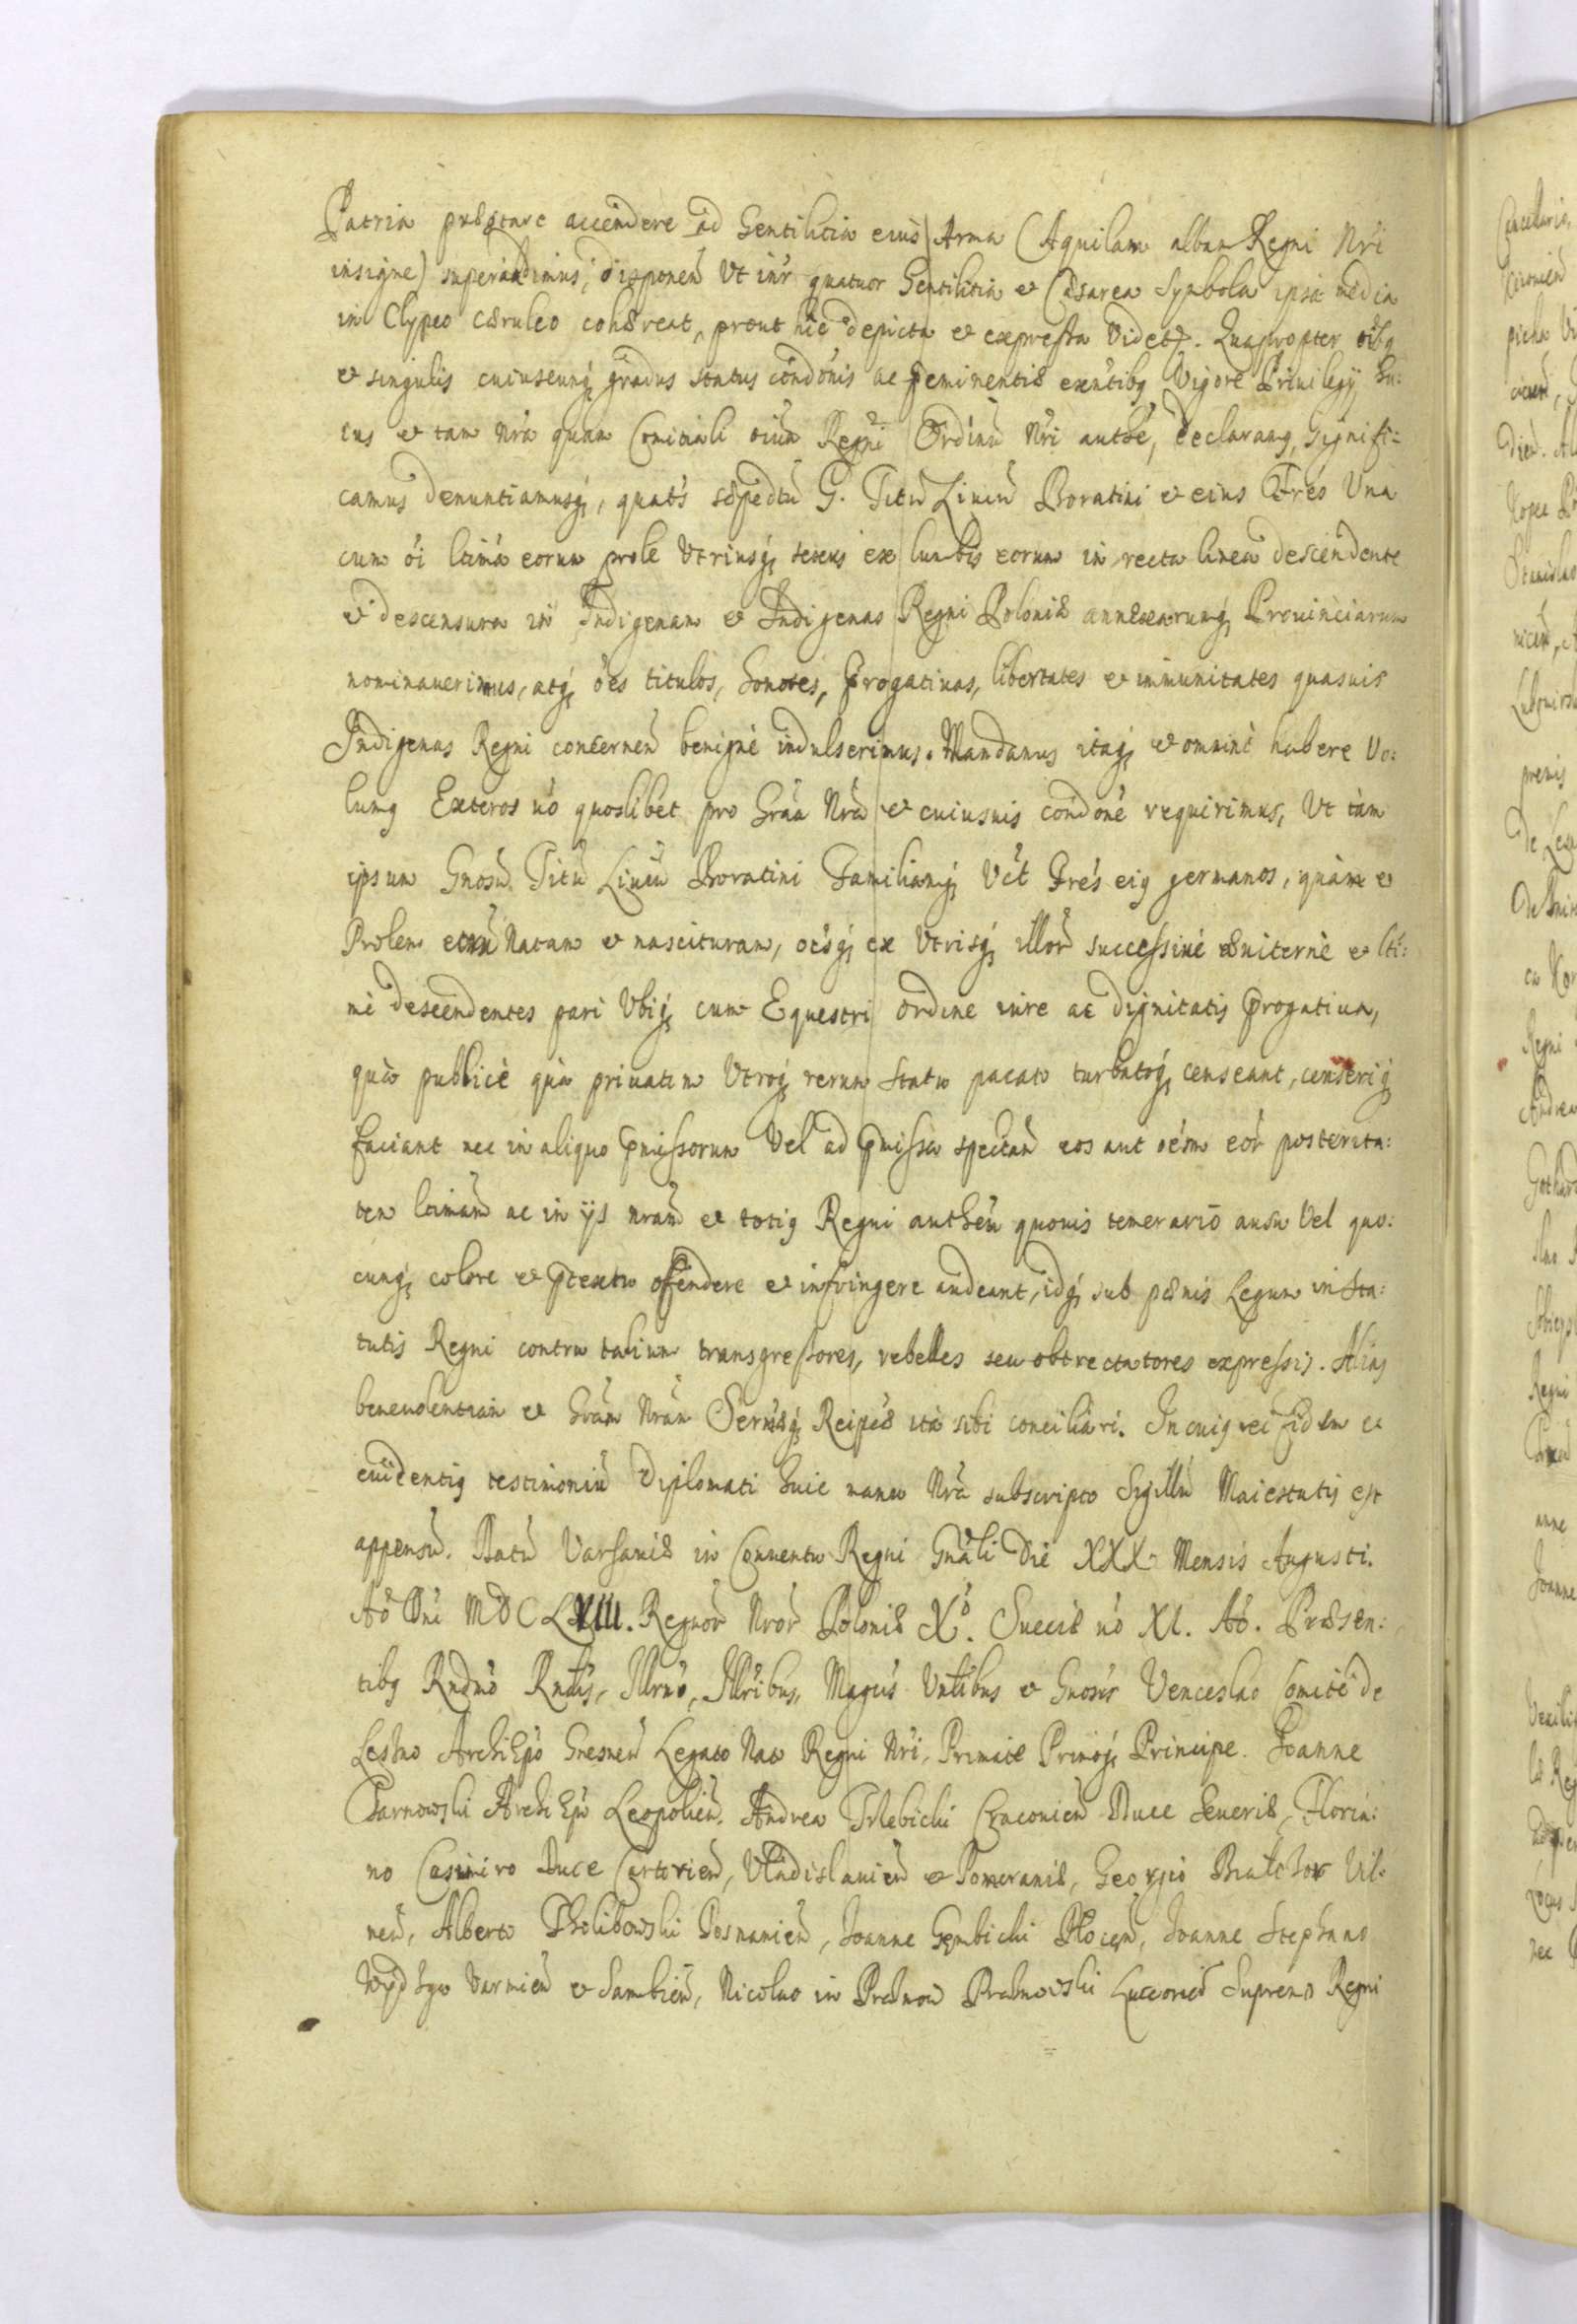 Patria præstare accendere ad Gentilitia eius Arma (Aquilam albam Regni Nri
insigne) superaddimus, disponeñ Vt inr̃ quatuor Gentilitia et Cæsarea Symbola ipsa media
in Clypeo cæruleo cohæreat, prout hic depicta et expressa Videtr. Quapropter oĩbq
et singulis cuiuscunq gradus status condõnis ac peminentiæ exñtibq Vigore Priuilegÿ hu:
ius et tam Nrã quam Comitiali oiũm Regni Ordinũ Nri authẽ, declaramq, signifi:
camus denuntiamusq, quats̃ sæpedtũ G. Titũ Liuiũ Boratini et eius Frẽs Vna
cum oĩ ltima eorum prole Vtriusq sexus ex lumbis eorum in recta linea descendente
et descensura in Indigenam et Indigenas Regni Poloniæ annexarumq Prouinciarum
nominauerimus, atq oẽs titulos, honores, progatiuas, libertates et immunitates quasuis
Indigenas Regni concerneñ benignè indulserimus. Mandamus itaq et omninò habere Vo:
lumq Exteros uò quoslibet pro Grãa Nrã et cuiusuis condõne requirimus, Vt tàm
ipsum Gnosũ Titũ Liuiũ Boratini Familiamq Vt̃ Frẽs eiq germanos, quàm et
Prolem eorũ Natam et nascituram, oẽsq ex Vtrisq illor̃ successiuè æuiternè et lti:
mè descendentes pari Vbiq cum Equestri ordine iure ac dignitatis progatiua,
quà publicè quà priuatim Vtroq rerum statu pacato turbatoq censeant, censeriq
faciant nec in aliquo pmissorum Vel ad pmissa spectañ eos aut oẽm eor̃ posterita:
tem ltimam ac in ijs nram et totiq Regni autheñ quouis temerario ausu Vel quo:
cunq colore et ptextu offendere et infringere audeant, idq sub pænis Legum in Sta:
tutis Regni contra talium transgressores, rebelles seu obtrectatores expressis. Aliaq
beneuolentiam et Grãm Nrãm Sermæq Reipcæ ità sibi conciliari. In cuiq rei fidem et
euidentiq testimoniũ Diplomati huic manu Nrã subscripto Sigillũ Maiestatis est
appensũ. Datũ Varsauiæ in Conuentu Regni Gnãli Die XXX Mensis Augusti.
Aõ Dni MDCLVIII. Regnor̃ Nror̃ Poloniæ Xº. Sueciæ uò XI. Aõ. Præsen:
tibq Rndmo Rndis, Illrmo, Illribus, Magcis Vntibus et Gnosis Venceslao Comite de
Leszno ArchiEpo Gnesneñ Legato Nato Regni Nri, Primate Primoq Principe. Joanne
Tarnowski ArchiEpo Leopolieñ. Andrea Trzebicki Cracouieñ Duce Seueriæ, Floria:
no Casimiro Duce Czartorieñ, Vladislauieñ et Pomeraniæ, Georgio Białłozor Vil:
neñ, Alberto Tholibowski Posnanieñ, Joanne Gembicki Ploceñ, Joanne Stephano
Wydżga Varmieñ et Sambieñ, Nicolao in Prażmow Prażmowski Luceorieñ Supremo Regni